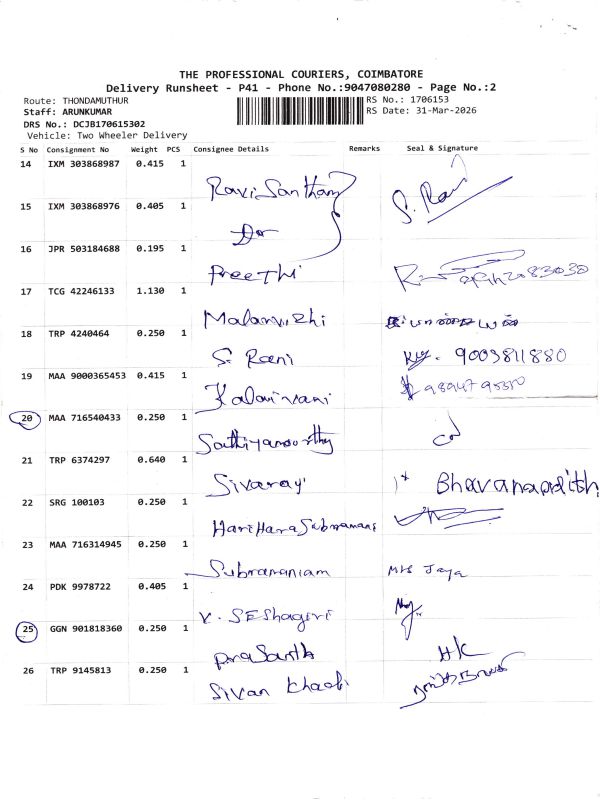 THE PROFESSIONAL COURIERS, COIMBATORE
Delivery Runsheet - P41 - Phone No.:9047080280 - Page No.:2
Route: THONDAMUTHUR
RS No.: 1706153
Staff: ARUNKUMAR
RS Date: 31-Mar-2026
DRS No.: DCJB170615302
Vehicle: Two Wheeler Delivery
S No Consignment No Weight PCS Consignee Details Remarks Seal & Signature
14 IXM 303868987 0.415 1 Ravi Santham S. Ravi
15 IXM 303868976 0.405 1 Do
16 JPR 503184688 0.195 1 Preethi
17 TCG 42246133 1.130 1 Malarvizhi
18 TRP 4240464 0.250 1 S. Rani 9003811880
19 MAA 9000365453 0.415 1 Kalaivani
20 MAA 716540433 0.250 1 Sathiyamoorthy
21 TRP 6374297 0.640 1 Sivaraj
22 SRG 100103 0.250 1 HariHara Subramani
23 MAA 716314945 0.250 1 Subramaniam Mrs Jaya
24 PDK 9978722 0.405 1 V. SEShagiri
25 GGN 901818360 0.250 1 PraSanth HK
26 TRP 9145813 0.250 1 Sivan